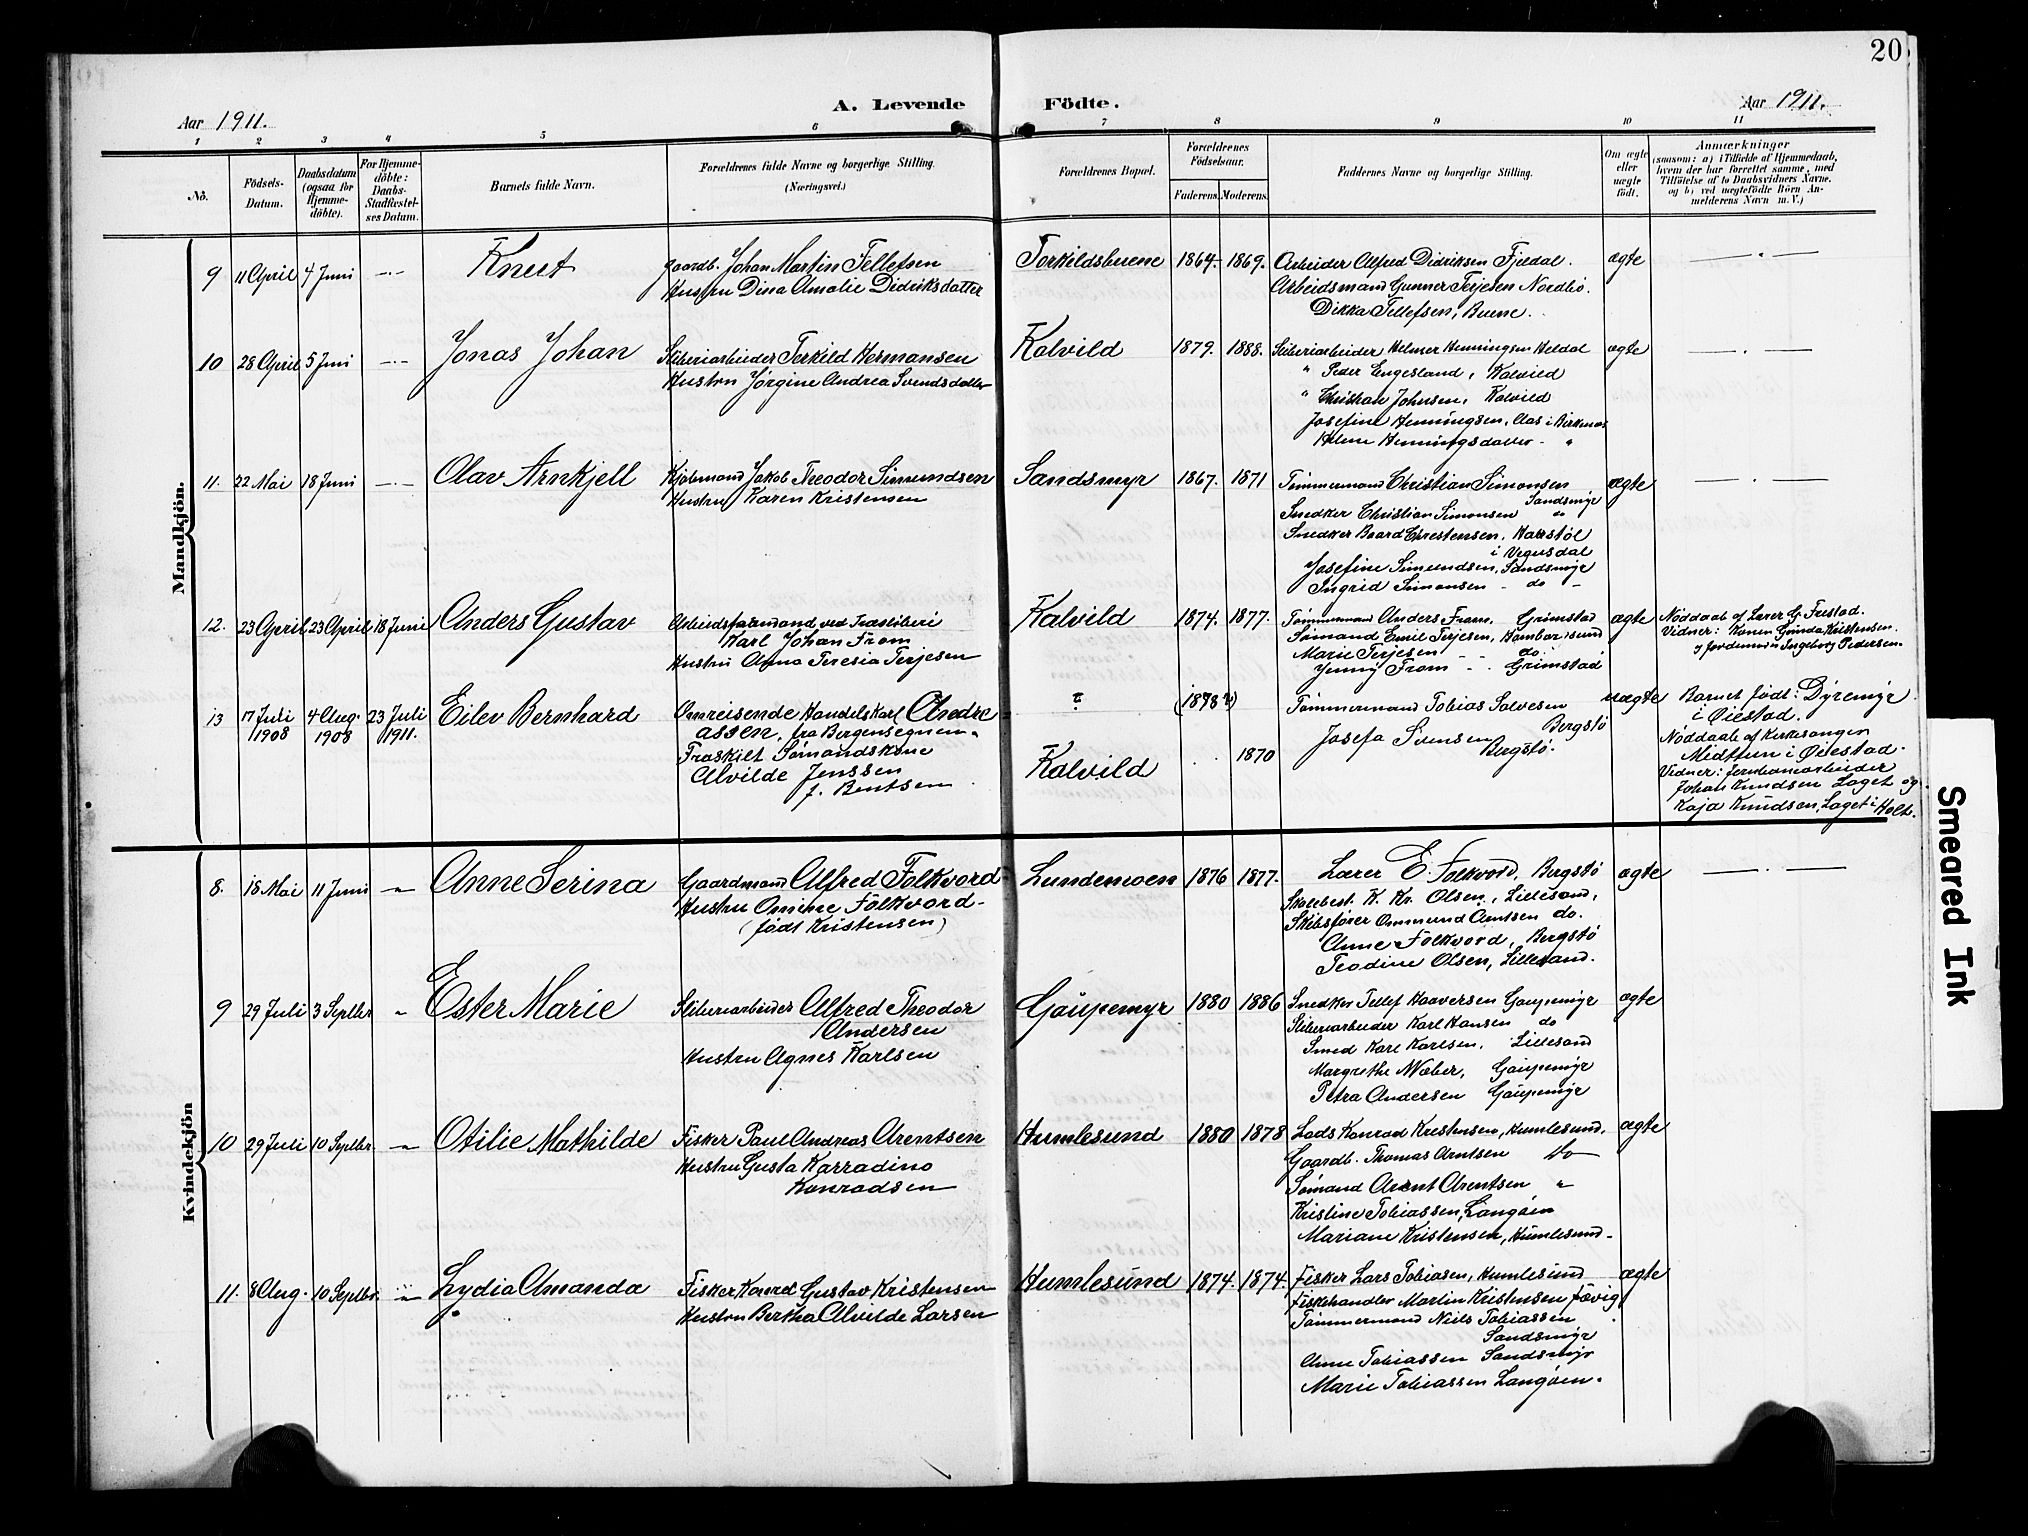 20
A. Levende Födte.
Aar 1911.
Aar 1911.
1 2 3 4 5 6 7 8 9 10 11
No.
Födsels-Datum.
Daabsdatum (ogsaa for Hjemme-döbte).
For Hjemme-döbte: Daabs-Stadfæstel-ses Datum.
Barnets fulde Navn.
Forældrenes fulde Navne og borgerlige Stilling. (Næringsvei.)
Forældrenes Bopæl.
Forældrenes Födselsaar.
Faderens. Moderens.
Faddernes Navne og borgerlige Stilling.
Om ægte eller uægte födt.
Anmærkninger
(saasom: a) i Tilfælde af Hjemmedaab,
hvem der har forrettet samme, med
Tilföielse af to Daabsvidners Navne,
og b) ved uægtefödte Börn An-
melderens Navn m. V.)
Mandkjön.
9 11 April 4 Juni -·- Knut
gaardb. Johan Martin Tellefsen
Hustru Dina Amalie Didriksdatter
Torkildsbuene 1864. 1869.
Arbeider Alfred Didriksen Fjeldal.
Arbeidsmand Gunner Terjesen Nordbö.
Dikka Tellefsen, Buene.
ægte
10 28 April 5 Juni -·- Jonas Johan
Sliberiarbeider Terkild Hermansen
Hustru Jørgine Andrea Svendsdatter
Kalvild 1879. 1888.
Sliberiarbeider Helmer Henningsen Heldal
" Peder Engesland, Kalvild
" Christian Johnsen, Kalvild
Josefine Henningsen, Aas i Birkenæs
Helene Henningsdatter - "
ægte
11. 22 Mai 18 Juni -·- Olav Arnkjell
Kjøbmand Jakob Theodor Simundsen
Hustru Karen Kristensen
Sandsmyr 1867. 1871
Tømmermand Christian Simonsen
Sandsmyr
Snedker Christian Simonsen "
Snedker Baard Chrestensen, Hakstøl
i Vegusdal
Josefine Simundsen, Sandsmyr
Ingrid Simonsen - do -
ægte
12. 23 April 23 April 18 Juni Anders Gustav
Arbeidsformand ved Træsliberi
Karl Johan From
Hustru Anna Teresia Terjesen
Kalvild 1874. 1877.
Tømmermand Anders From, Grimstad
Sømand Emil Terjesen, Hambarsund
Marie Terjesen - - do
Jenny From - - Grimstad
ægte
Nøddaab af Lærer G. Frestad.
Vidner: Konen Gunda Kristensen
og Jordemoder Ingeborg Pedersen
13 17 Juli 1908 4 Aug. 1908 23 Juli 1911. Eilev Bernhard
Omreisende Handelskarl Andre
assen, fra Bergensegnen.
Fraskilt Sømandskone
Alvilde Jenssen
f. Bentsen
? (1878?)
Kalvild 1870
Tømmermand Tobias Salvesen
Bergstø
Josefa Svensen
Bergstø.
uægte
Barnet født: Dyremyr
i Øiestad.
Nøddaab af Kirkesanger
Midttun i Øiestad.
Vidner: Jernbanearbeider
Johan Knudsen Laget og
Kaja Knudsen, Laget i Holt.
Kvindekjön
8. 18 Mai 11 Juni " Anne Serina
Gaardmand Alfred Folkvord
Hustru Omine Folkvord
(født Kristensen)
Lundemoen 1876 1877.
Lærer E. Folkvord, Bergstø
Skolebest. K. Kr. Olsen, Lillesand,
Skibsfører Ommund Arntsen do.
Anne Folkvord, Bergstø
Teodine Olsen, Lillesand.
ægte
9 29 Juli 3 Septbr " Ester Marie
Sliberiarbeider Alfred Theodor
Andersen
Hustru Agnes Karlsen
Gaupemyr 1880 1886
Snedker Tellef Haaversen Gaupemyr
Sliberiarbeider Karl Hansen do
Smed Karl Karlsen, Lillesand
Margrethe Næber, Gaupemyr
Petra Andersen Gaupemyr
ægte
10 29 Juli 10 Septbr. " Otilie Mathilde
Fisker Paul Andreas Arentsen
Hustru Gusta Karradine
Konradsen
Humlesund 1880 1878
Lods Konrad Kristensen, Humlesund.
Gaardb. Thomas Arntsen do
Sømand Arent Arentsen "
Kristine Tobiassen, Langøen
Mariane Kristensen, Humlesund.
ægte
11. 8 Aug. 10 Septbr. " Lydia Amanda
Fisker Konrad Gustav Kristensen
Hustru Bertha Alvilde Larsen
Humlesund 1874. 1874.
Fisker Lars Tobiasen, Humlesund
Fiskehandler Martin Kristensen Fævig
Tømmermand Niels Tobiassen
Sandsmyr
Anne Tobiassen Sandsmyr
Marie Tobiassen Langøen.
ægte
Smeared Ink